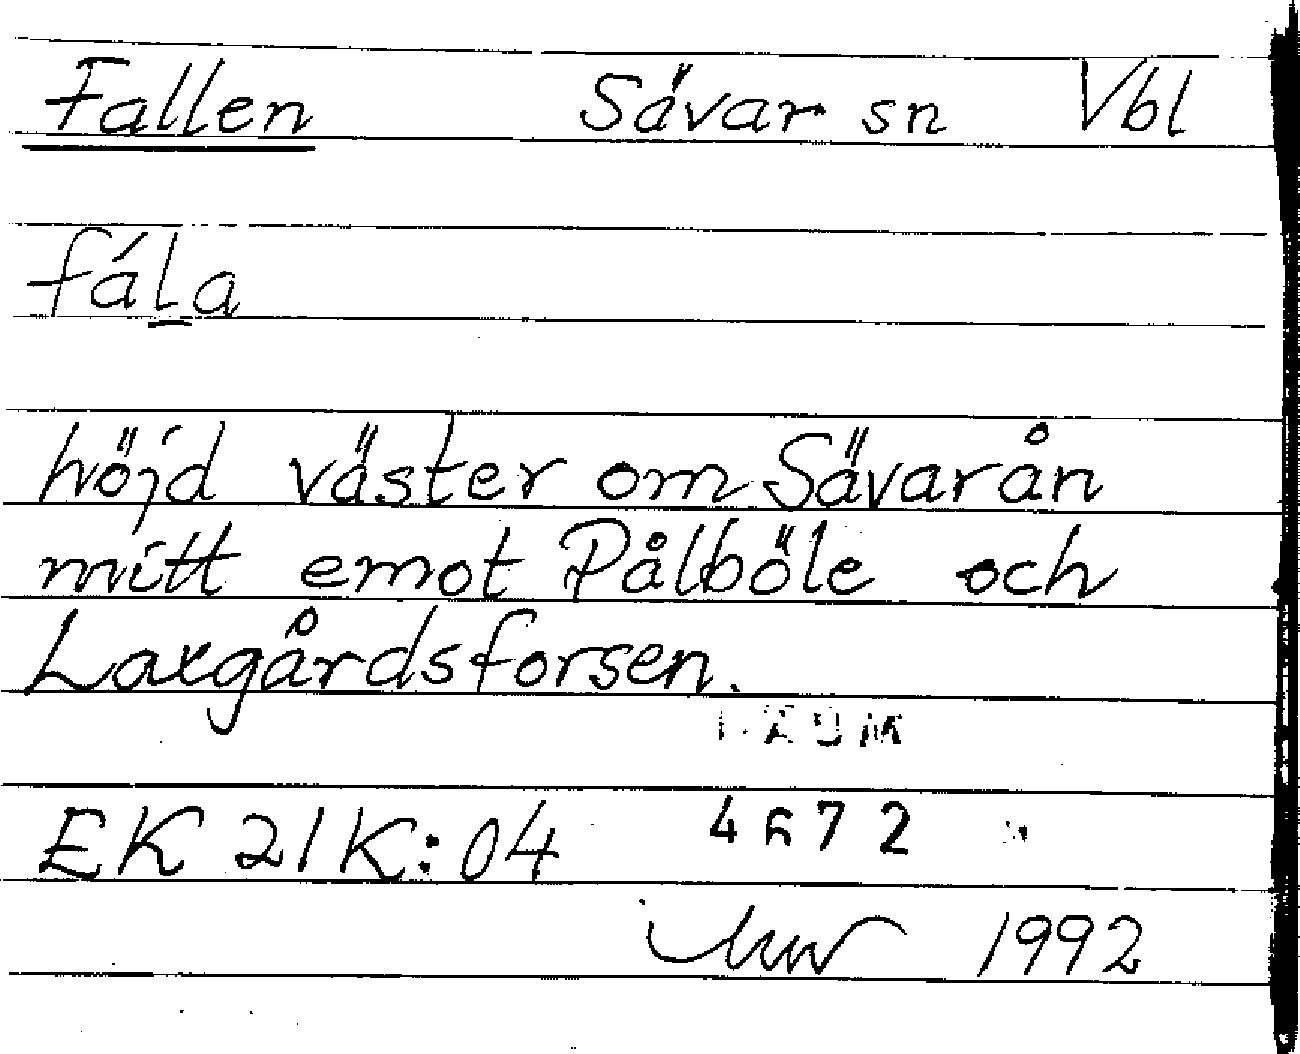 Fallen Sävar sn Vbl
fáḻa
höjd väster om Sävarån
mitt emot Pålböle och
Laxgårdsforsen.
EK 21K:04 4672
1992